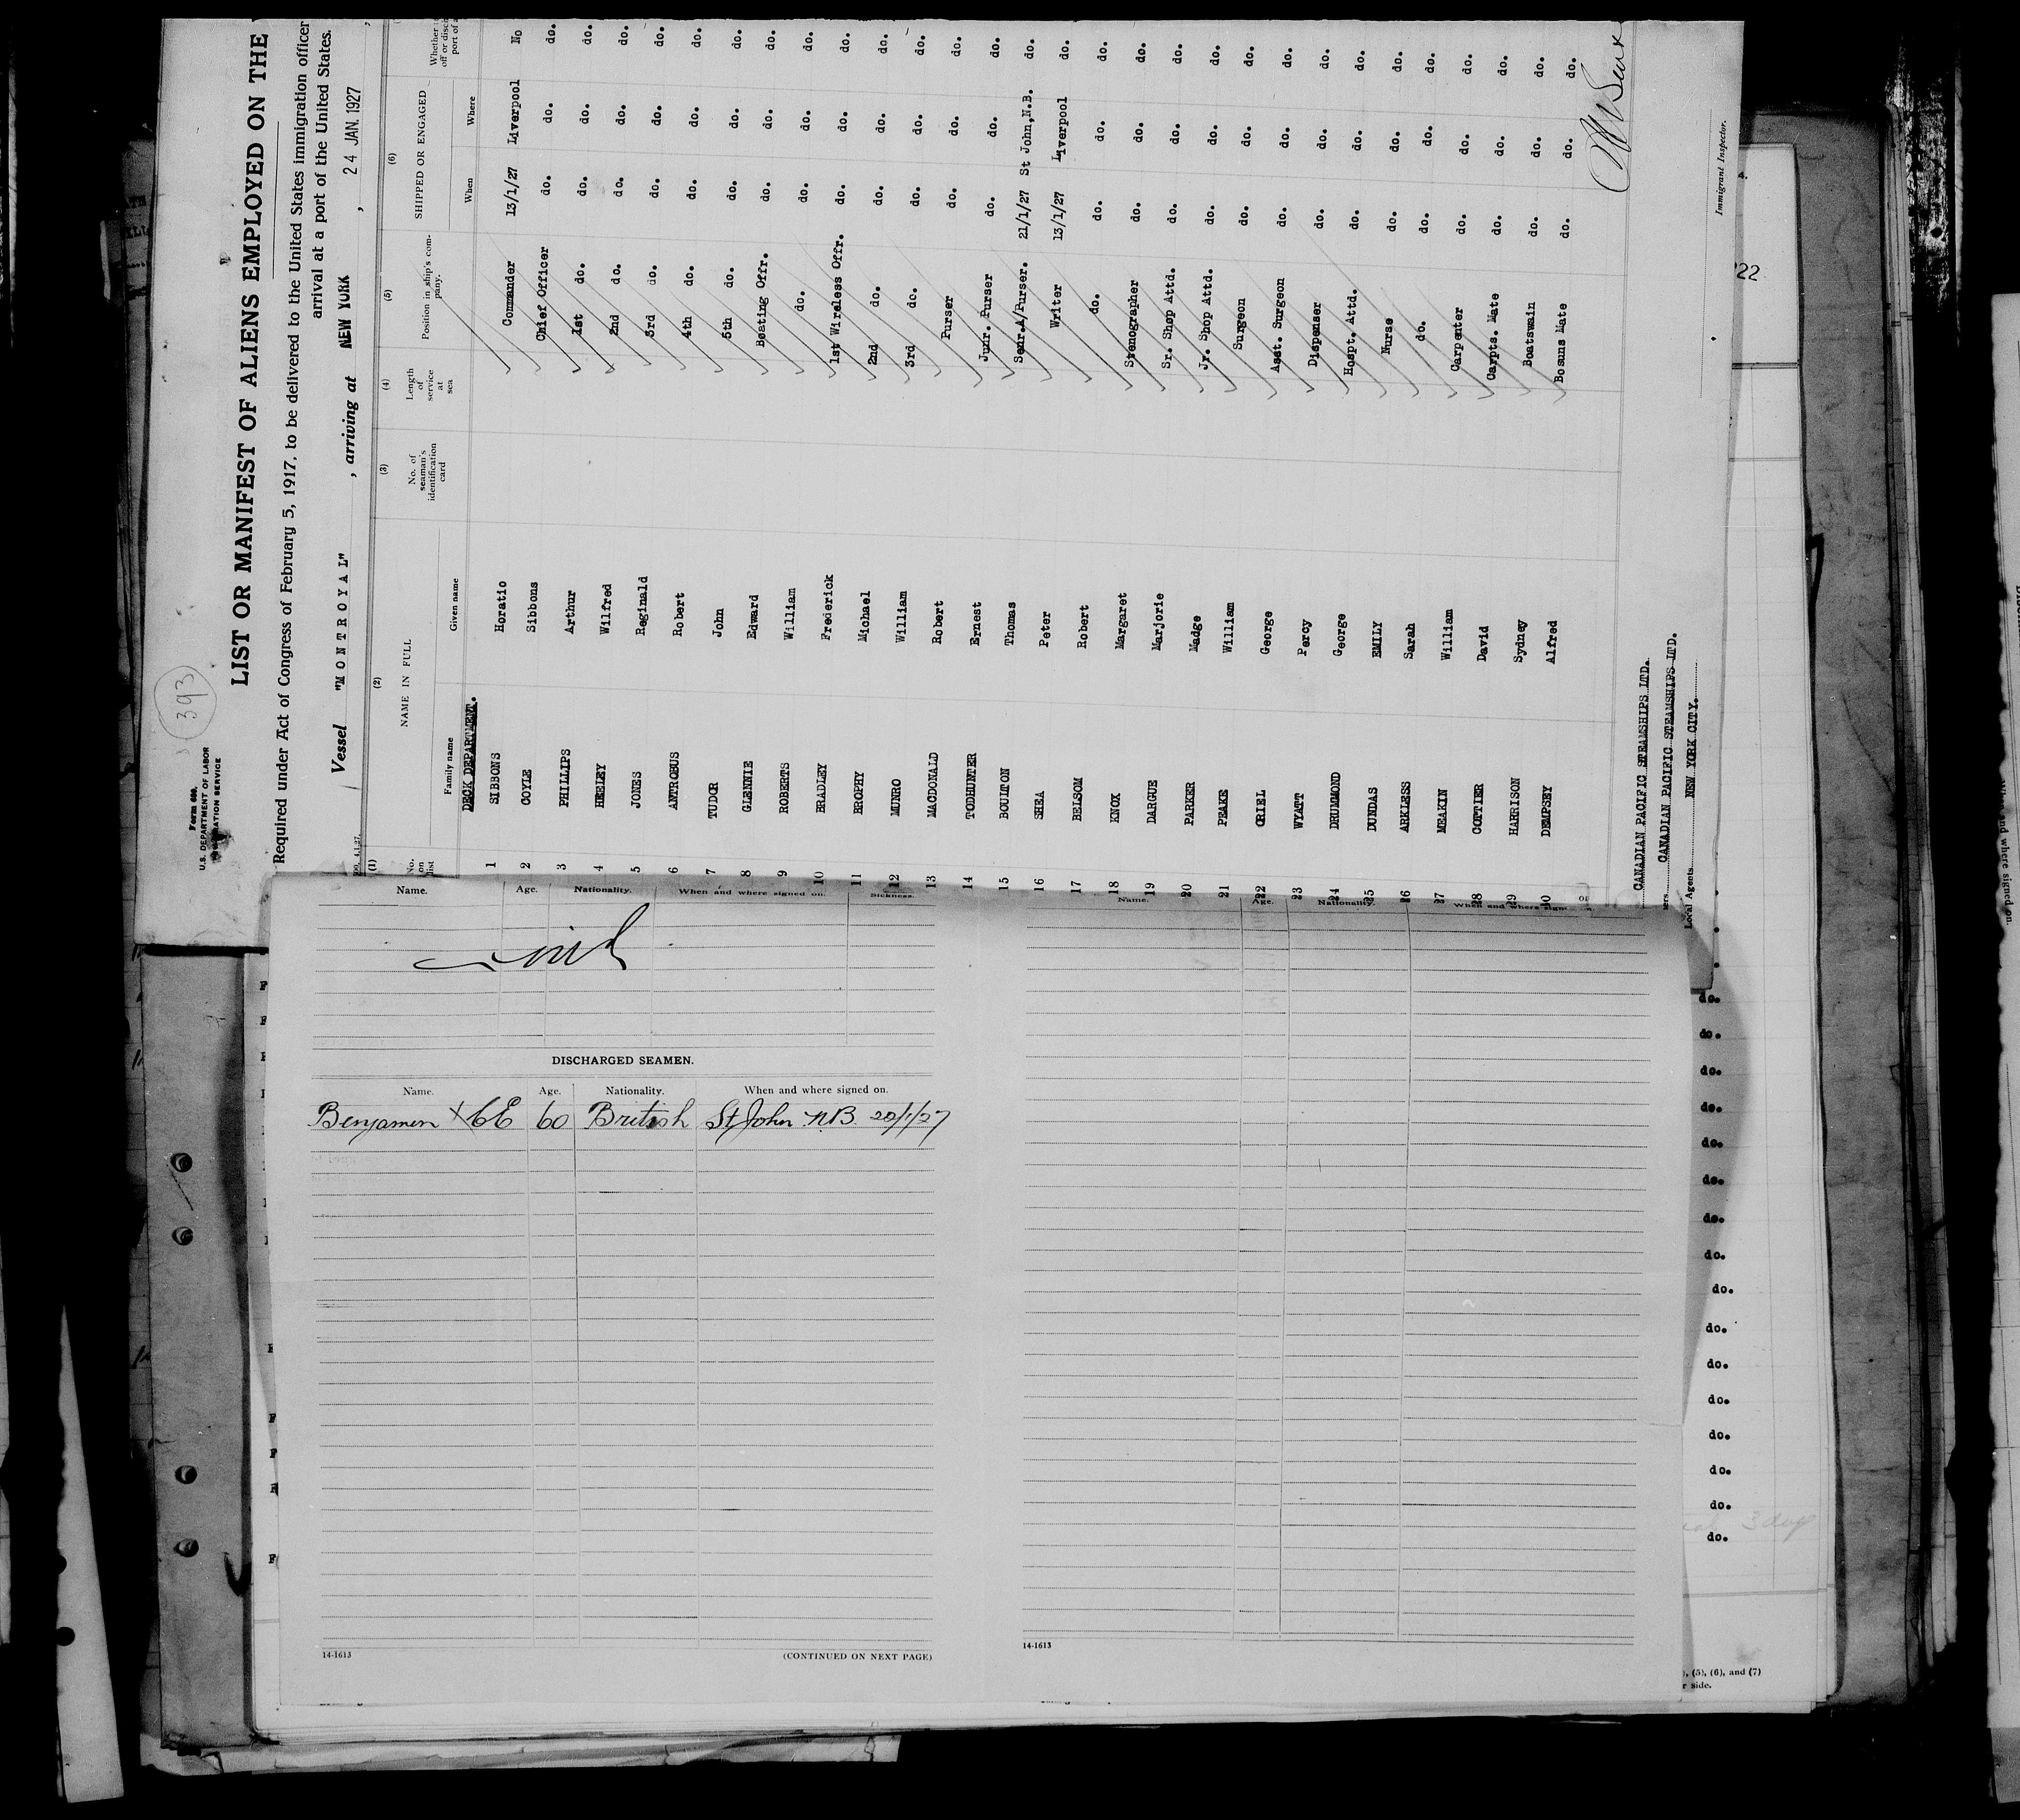 393
Form 680.
U.S. DEPARTMENT OF LABOR
IMMIGRATION SERVICE
LIST OR MANIFEST OF ALIENS EMPLOYED ON THE
Required under Act of Congress of February 5, 1917, to be delivered to the United States immigration officer
arrival at a port of the United States.
Vessel "MONTROYAL", arriving at NEW YORK, 24 JAN. 1927,
(1) (2) (3) (4) (5) (6)
NAME IN FULL No. of seaman's identification card Length of service at sea Position in ship's company. SHIPPED OR ENGAGED
No. on list Family name Given name When Where
DECK DEPARTMENT.
1 SIBBONS Horatio Commander 13/1/27 Liverpool No
2 COYLE Sibbons Chief Officer do. do. do.
3 PHILLIPS Arthur 1st do. do. do. do.
4 HEELEY Wilfred 2nd do. do. do. do.
5 JONES Reginald 3rd do. do. do. do.
6 ANTROBUS Robert 4th do. do. do. do.
7 TUDOR John 5th do. do. do. do.
8 GLENNIE Edward Boating Offr. do. do. do.
9 ROBERTS William do. do. do. do.
10 BRADLEY Frederick 1st Wireless Offr. do. do. do.
11 BROPHY Michael 2nd do. do. do. do.
12 MUNRO William 3rd do. do. do. do.
13 MACDONALD Robert Purser do. do. do.
14 TODHUNTER Ernest Junr. Purser do. do. do.
15 BOULTON Thomas Senr.A/Purser. 21/1/27 St John,N.B. do.
16 SHEA Peter Writer 13/1/27 Liverpool do.
17 BELSOM Robert do. do. do. do.
18 KNOX Margaret Stenographer do. do. do.
19 DARGUE Marjorie Sr. Shop Attd. do. do. do.
20 PARKER Madge Jr. Shop Attd. do. do. do.
21 PEAKE William Surgeon do. do. do.
22 CRIEL George Asst. Surgeon do. do. do.
23 WYATT Percy Dispenser do. do. do.
24 DRUMMOND George Hospt. Attd. do. do. do.
25 DUNDAS EMILY Nurse do. do. do.
26 ARKLESS Sarah do. do. do. do.
27 MEAKIN William Carpenter do. do. do.
28 COTTIER David Carpts. Mate do. do. do.
29 HARRISON Sydney Boatswain do. do. do.
30 DEMPSEY Alfred Bosuns Mate do. do. do.
CANADIAN PACIFIC STEAMSHIPS LTD.
CANADIAN PACIFIC STEAMSHIPS LTD.
Local Agents NEW YORK CITY.
Immigrant Inspector.
Name. Age. Nationality. When and where signed on. Sickness.
DISCHARGED SEAMEN.
Name. Age. Nationality. When and where signed on.
Benjamen 60 British St John N.B. 20/1/27
14-1613
(CONTINUED ON NEXT PAGE)
Name. Age. Nationality.
14-1613
do.
do.
do.
do.
do.
do.
do.
do.
do.
do.
do.
do.
do.
do.
do.
do.
(5), (6), and (7)
side.